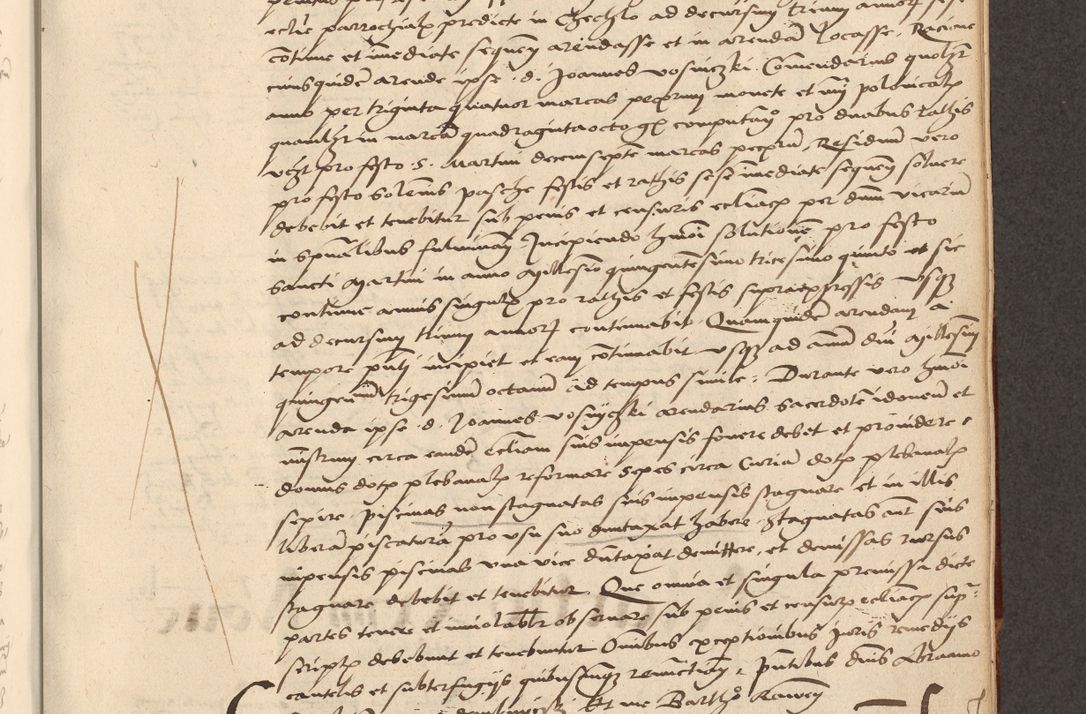 ecclie parrochialis predicte in Chechlo ad decursum trium annorum sese
contine et imediate sequen arendasse et in arendam locasse. Racione
cuiusquidem arende ipse d. Joannes Vosniczki Comendarius quolibet
anno per triginta quatuor marcas pecuniarum monete et nri polonicalis
quamlibet in marcam quadragintaocto gr computan pro duabus rathis
vczt pro festo S. Martini decemseptem marcas pecuniarum, Residuum vero
pro festo solenis pasche festis et rathis sese imediate sequen solvere
debebit et tenebitur sub penis et censuris ecclesiasticis per dnum vicarium
in spualibus fulminan. Incipiendo hmoi solutionem pro festo
Sancti Martini in anno Millesimo quingentesimo tricesimo quinto et sic
continue annis singulis pro rathis et festis supraexpressis usque
ad decursum trium annorum continuabit. Quamquidem arendam a
tempore pnti incipiet et eam continuabit usque ad annum dni Millesimum
quingentesimum trigesimum octavum ad tempus simile. Durante vero hmoi
arenda ipse d. Joannes Vosnyczki arendarius sacerdotem idoneum et
circa eandem eccliam suis impensis fovere debet et providere
domus dotis plebanalis reformare sepes circa Curiam dotis plebanalis
sepire. Piscinas non stagnatas suis impensis stagnare et in illis
liberam piscaturam pro usu suo duntaxat habere. Stagnatas aut suis
impensis piscinas una vice duntaxat demittere, et demissas rursus
stagnare debebit et tenebitur. Que omnia et singula premissa dicte
partes tenere et inviolabiliter observare sub penis et censuris ecclesiasticis sup=
scriptis debebunt et tenebuntur Omnibus exceptionibus juris remedijs
cautelis et subterfugijs quibuscunque renunctian. Pntibus dnis Abraamo
et me Bartho